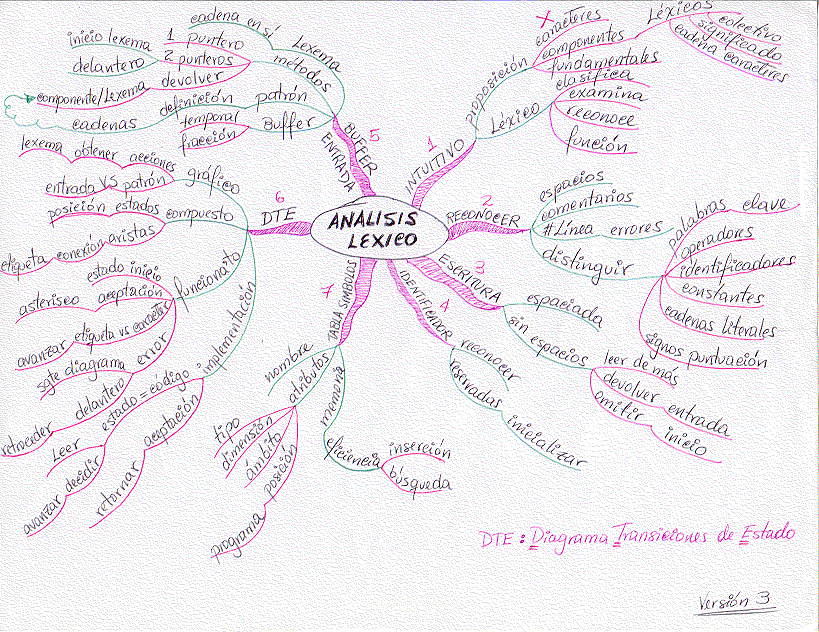 ANALISIS LEXICO
1 INTUITIVO
proposición
X caracteres
componentes
Léxicos
colectivo
significado
cadena caracteres
fundamentales
Léxico
clasifica
examina
reconoce
función
2 RECONOCER
espacios
comentarios
#Línea errores
distinguir
palabras clave
operadores
identificadores
constantes
cadenas literales
signos puntuación
3 ESCRITURA
espaciada
sin espacios
leer de más
devolver entrada
omitir inicio
4 IDENTIFICADOR
reconocer
reservadas inicializar
5 BUFFER ENTRADA
Lexema
cadena en sí
métodos
1 puntero
inicio lexema
2 punteros
delantero
devolver
componente/Lexema
patrón
definición
cadenas
Buffer
temporal
fracción
6 DTE
gráfico
acciones
obtener
lexema
entrada VS patrón
compuesto
posición estados
aristas
conexión
etiqueta
funcionamto
estado inicio
aceptación
asterisco
etiqueta vs caracter
avanzar
error
sgte diagrama
delantero
retroceder
implementación
estado = código
Leer
decidir
avanzar
aceptación
retornar
7 TABLA SIMBOLOS
nombre
atributos
tipo
dimensión
ámbito
posición
programa
memoria
eficiencia
inserción
búsqueda
DTE : Diagrama Transiciones de Estado
Versión 3